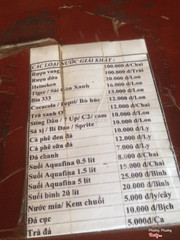 CÁC LOẠI NƯỚC GIẢI KHÁT
Rượu vang 100.000 đ/Chai
Rượu dừa 100.000 đ/Trái
Heineken 20.000 đ/Lon
Tiger / Sài Gòn Xanh 16.000 đ/Lon
Bia 333 13.000 đ/Lon
Cocacola / Pepsi/ Bò húc 12.000 đ/Lon
Trà xanh 12.000 đ/Chai
/ 7 Up/ C2/ cam 10.000 đ/Lon
Sá xị / Bí Đao / Sprite 10.000 đ/Lon
Cà phê đá 10.000 đ/Ly
Cà phê sữa đá 12.000 đ/Ly
Đá chanh 8.000 đ/Ly
Suối Aquafina 0.5 lít 7.000 đ/Chai
Suối Aquafina 1.5 lít 15.000 đ/Chai
Suối Aquafina 5 lít 25.000 đ/Bình
Suối bình 20 lít 20.000 đ/Bình
Nước mía/ Kem chuối 5.000 đ/ly/cây
Đá cục 10.000 đ/Bịch
Trà đá 5.000đ/Ca